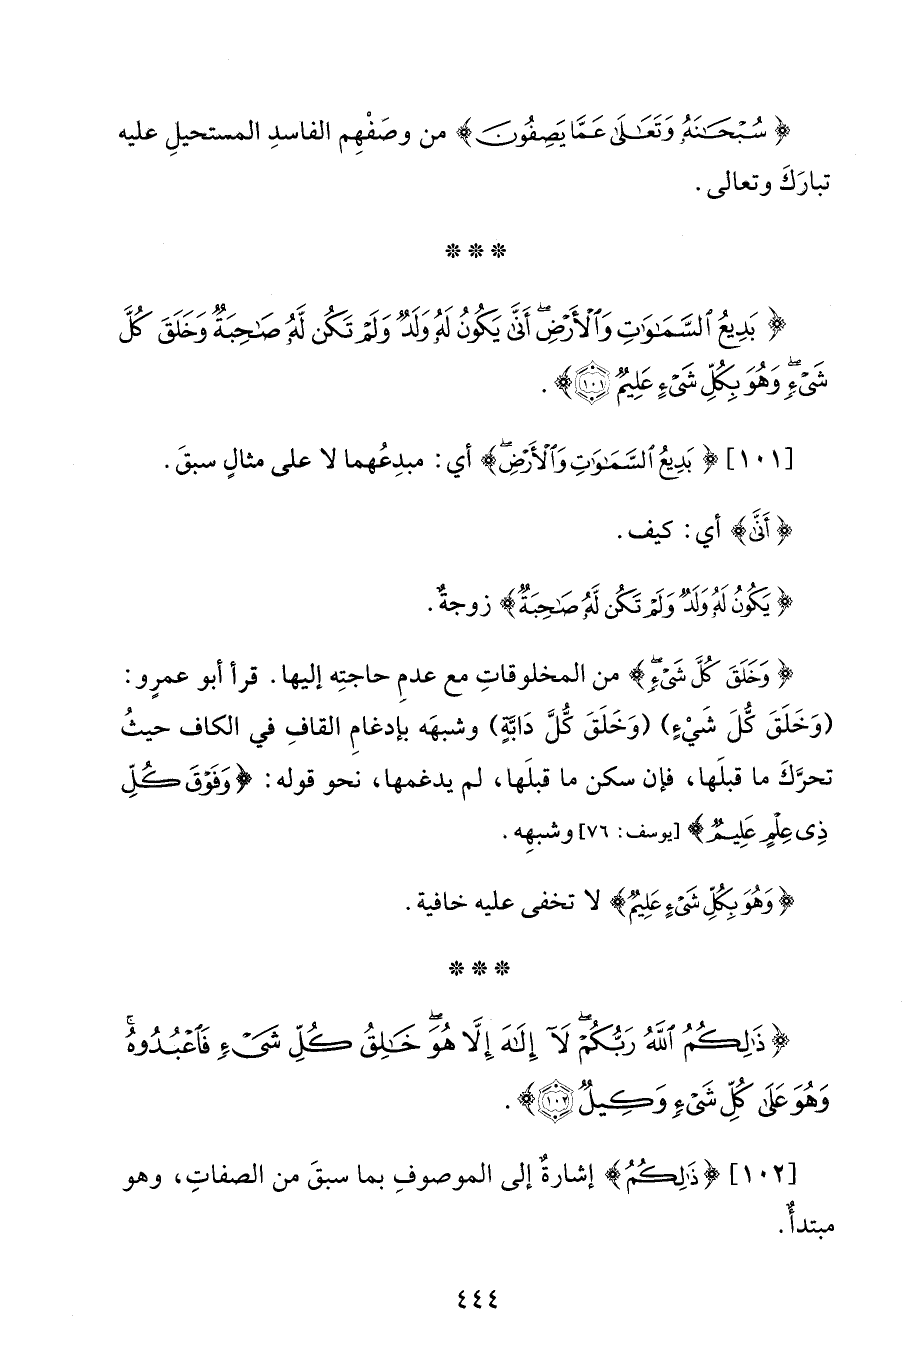 ﴿ سُبْحَـٰنَهُۥ وَتَعَـٰلَىٰ عَمَّا يَصِفُونَ ﴾ من وصَفْهِم الفاسدِ المستحيلِ عليه
تبارَكَ وتعالى .
* * *
﴿ بَدِيعُ ٱلسَّمَـٰوَٰتِ وَٱلْأَرْضِۖ أَنَّىٰ يَكُونُ لَهُۥ وَلَدٌ وَلَمْ تَكُن لَّهُۥ صَـٰحِبَةٌۖ وَخَلَقَ كُلَّ
شَىْءٍۖ وَهُوَ بِكُلِّ شَىْءٍ عَلِيمٌ ١٠١ ﴾ .
[١٠١] ﴿ بَدِيعُ ٱلسَّمَـٰوَٰتِ وَٱلْأَرْضِۖ ﴾ أي : مبدِعُهما لا على مثالٍ سبقَ .
﴿ أَنَّىٰ ﴾ أي : كيف .
﴿ يَكُونُ لَهُۥ وَلَدٌ وَلَمْ تَكُن لَّهُۥ صَـٰحِبَةٌۖ ﴾ زوجةٌ .
﴿ وَخَلَقَ كُلَّ شَىْءٍۖ ﴾ من المخلوقاتِ مع عدمِ حاجتِه إليها . قرأ أبو عمرٍو :
(وَخَلَقَ كُّلَ شَيْءٍ) (وَخَلَقَ كُّلَّ دَابَّةٍ) وشبهَه بإدغامِ القافِ في الكاف حيثُ
تحرَّكَ ما قبلَها، فإن سكن ما قبلَها، لم يدغمها، نحو قوله : ﴿ وَفَوْقَ كُلِّ
ذِى عِلْمٍ عَلِيمٌ ﴾ [يوسف: ٧٦] وشبهِه .
﴿ وَهُوَ بِكُلِّ شَىْءٍ عَلِيمٌ ﴾ لا تخفى عليه خافية .
* * *
﴿ ذَٰلِكُمُ ٱللَّهُ رَبُّكُمْۖ لَآ إِلَـٰهَ إِلَّا هُوَۖ خَـٰلِقُ كُلِّ شَىْءٍ فَٱعْبُدُوهُۚ
وَهُوَ عَلَىٰ كُلِّ شَىْءٍ وَكِيلٌ ١٠٢ ﴾ .
[١٠٢] ﴿ ذَٰلِكُمُ ﴾ إشارةٌ إلى الموصوفِ بما سبقَ من الصفاتِ، وهو
مبتدأٌ .
٤٤٤